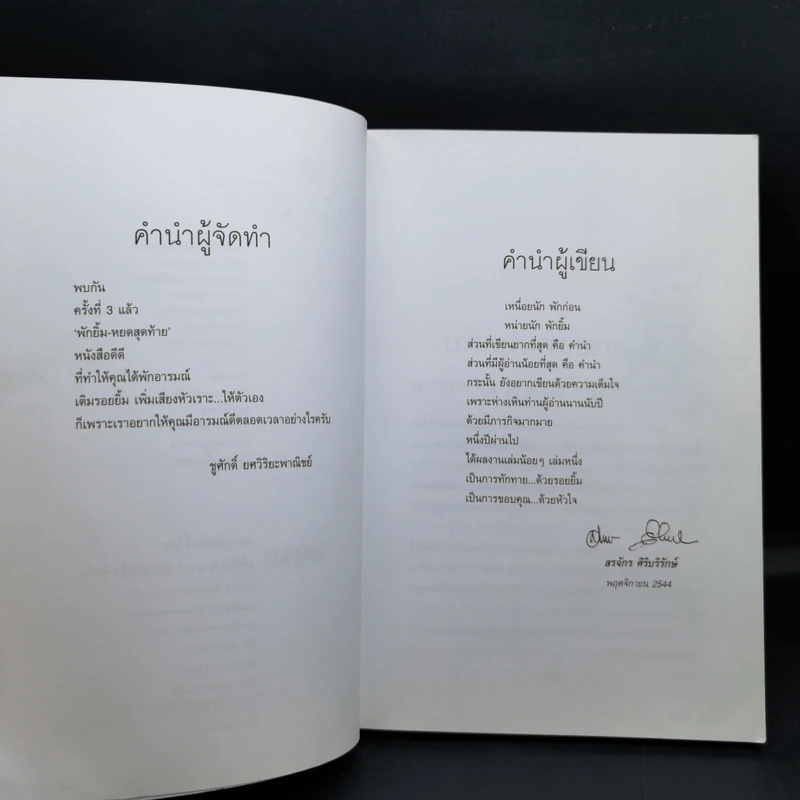 คำนำผู้จัดทำ
พบกัน
ครั้งที่ 3 แล้ว
'พักยิ้ม-หยดสุดท้าย'
หนังสือดีดี
ที่ทำให้คุณได้พักอารมณ์
เติมรอยยิ้ม เพิ่มเสียงหัวเราะ...ให้ตัวเอง
ก็เพราะเราอยากให้คุณมีอารมณ์ดีตลอดเวลาอย่างไรครับ
ชูศักดิ์ ยศวิริยะพาณิชย์
คำนำผู้เขียน
เหนื่อยนัก พักก่อน
หน่ายนัก พักยิ้ม
ส่วนที่เขียนยากที่สุด คือ คำนำ
ส่วนที่มีผู้อ่านน้อยที่สุด คือ คำนำ
กระนั้น ยังอยากเขียนด้วยความเต็มใจ
เพราะห่างเหินท่านผู้อ่านนานนับปี
ด้วยมีภารกิจมากมาย
หนึ่งปีผ่านไป
ได้ผลงานเล่มน้อยๆ เล่มหนึ่ง
เป็นการทักทาย...ด้วยรอยยิ้ม
เป็นการขอบคุณ...ด้วยหัวใจ
สรจักร ศิริบริรักษ์
พฤศจิกายน 2544